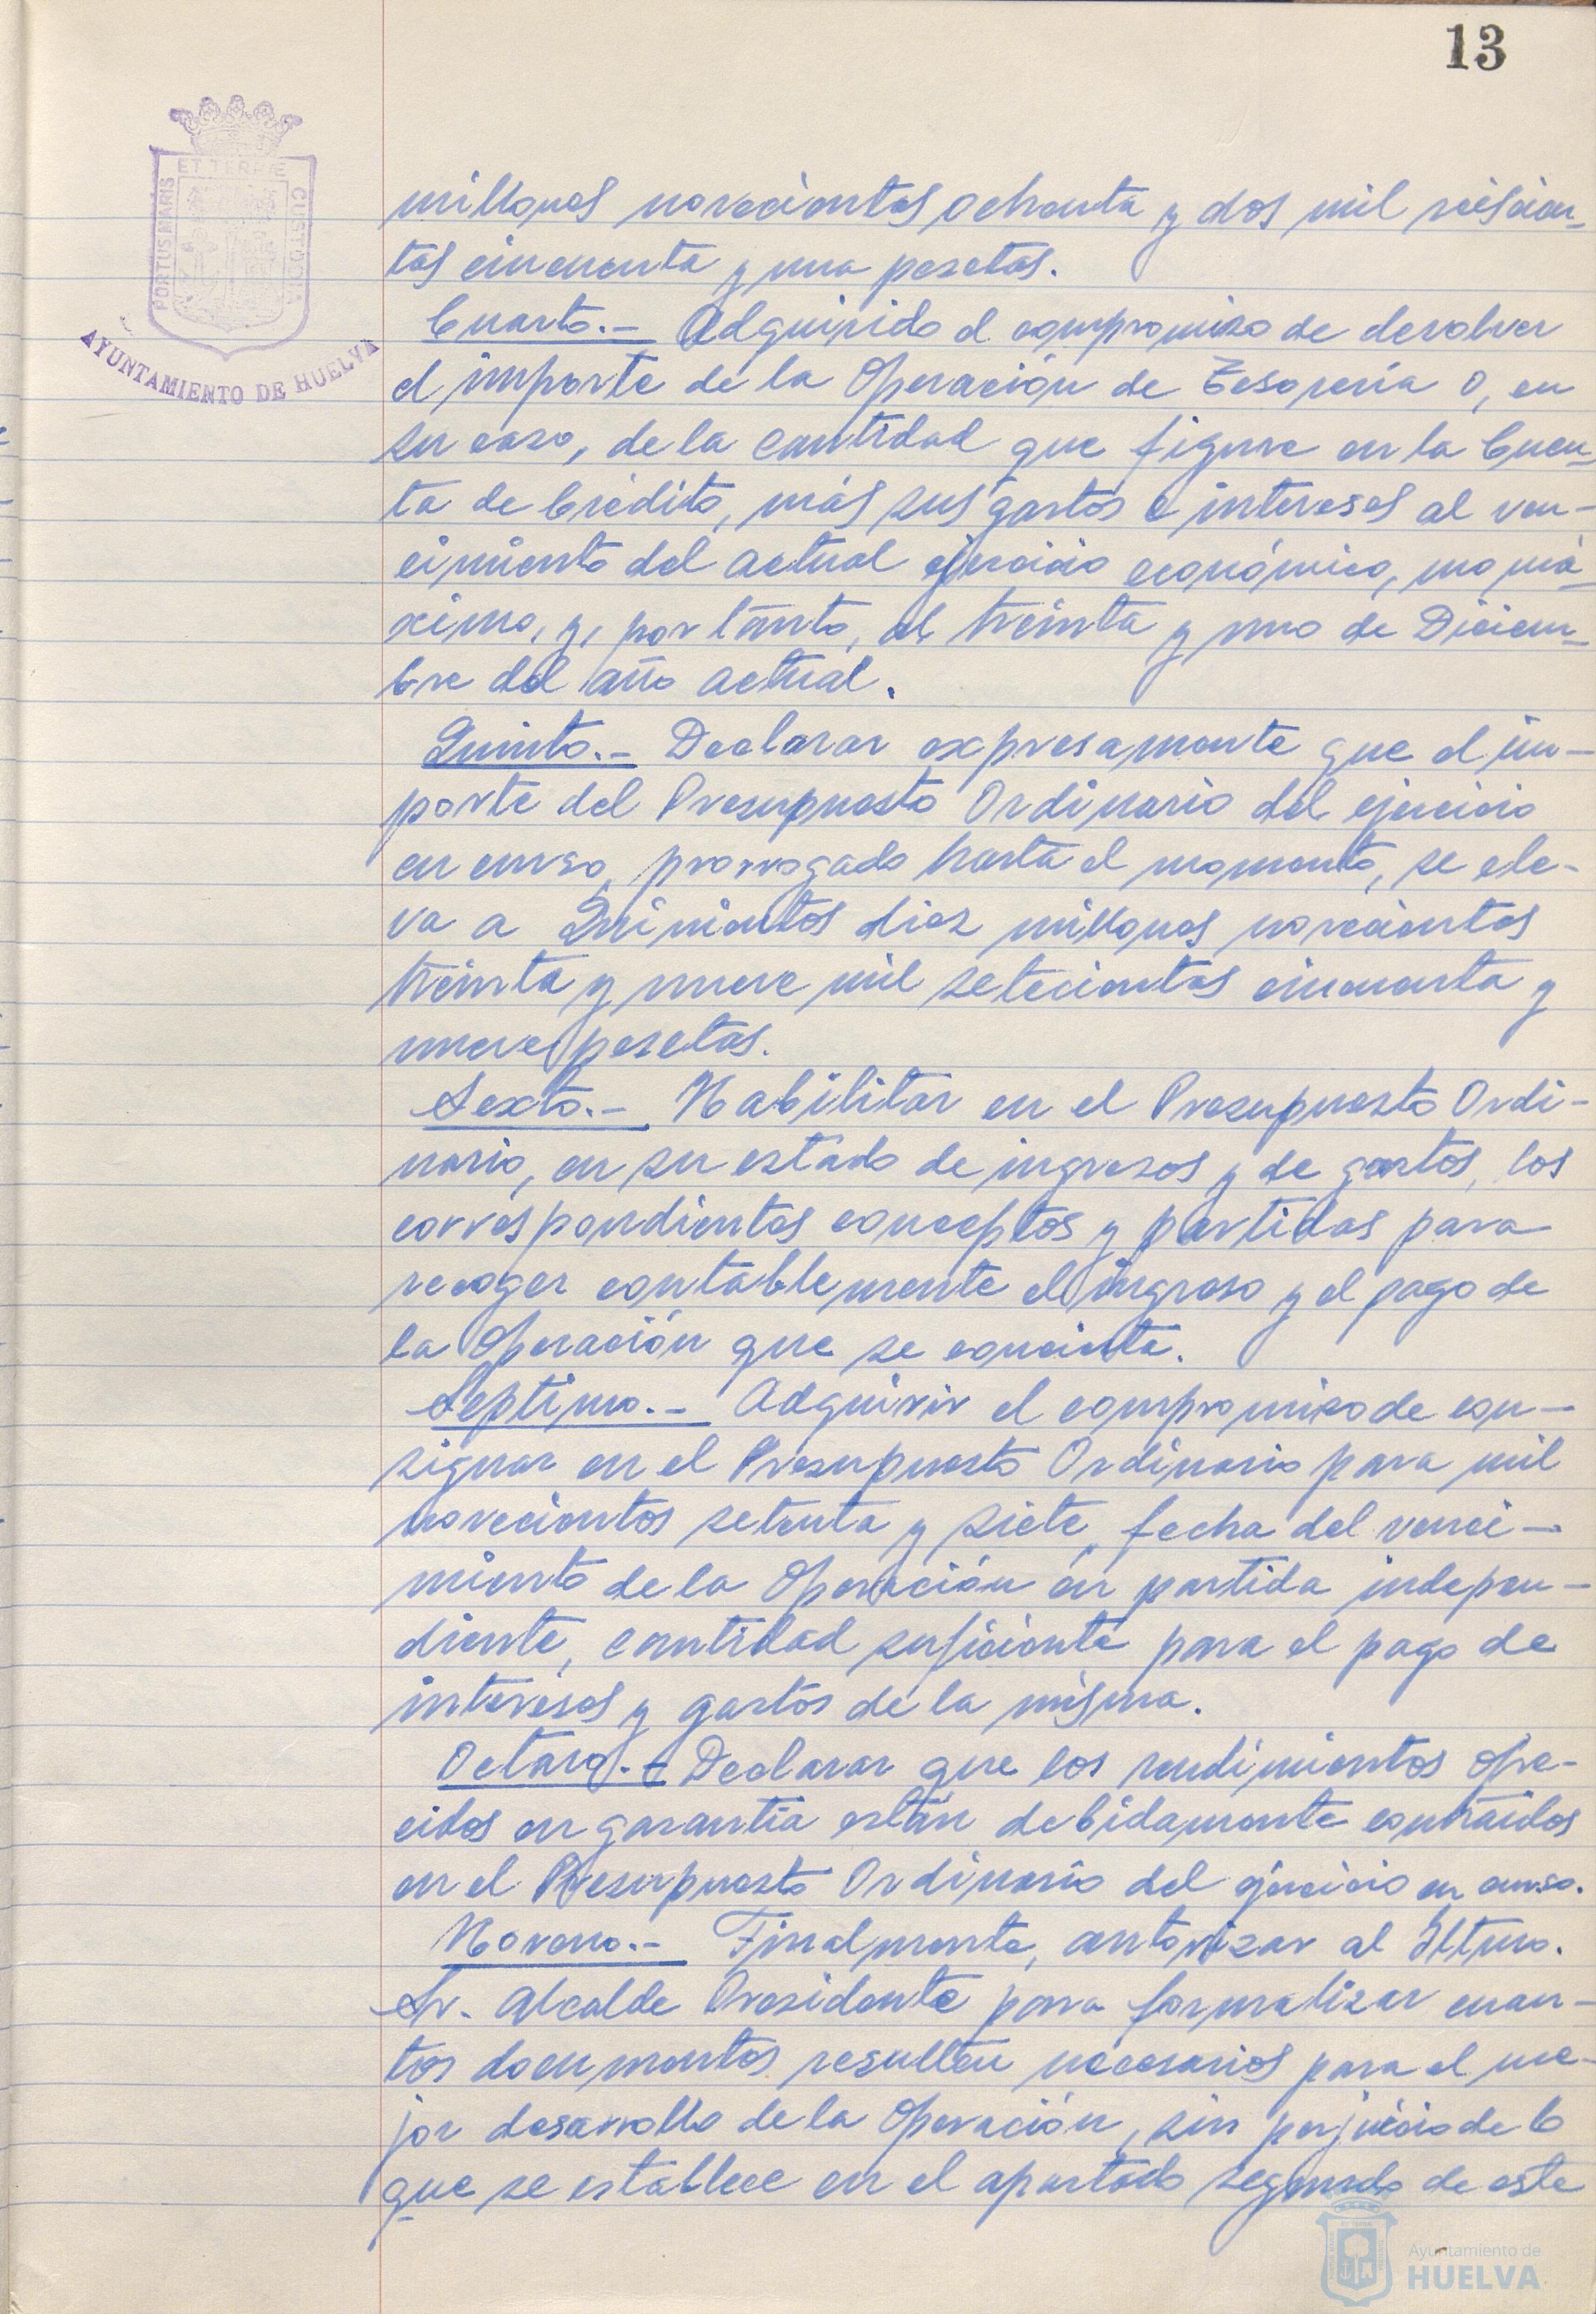 13
ET TERRÆ
PORTUS MARIS
CUSTODIA
AYUNTAMIENTO DE HUELVA
millones novecientas ochenta y dos mil seiscien_
tas cincuenta y una pesetas.
Cuarto.- Adquirido el compromiso de devolver
el importe de la Operación de Tesorería o, en
su caso, de la cantidad que figure en la Cuen_
ta de Crédito, más sus gastos e intereses al ven-
cimiento del actual ejercicio económico, como má_
ximo, y, por tanto, al treinta y uno de Diciem_
bre del año actual.
Quinto.- Declarar expresamente que el im-
porte del Presupuesto Ordinario del ejercicio
en curso, prorrogado hasta el momento, se ele-
va a Quinientos diez millones novecientas
treinta y nueve mil setecientas cincuenta y
nueve pesetas.
Sexto.- Habilitar en el Presupuesto Ordi-
nario, en su estado de ingresos y de gastos, los
correspondientes conceptos y partidas para
recoger contablemente el ingreso y el pago de
la Operación que se concierta.
Septimo.- Adquirir el compromiso de con-
signar en el Presupuesto Ordinario para mil
novecientos setenta y siete, fecha del venci-
miento de la Operación en partida indepen-
diente, cantidad suficiente para el pago de
intereses y gastos de la misma.
Octavo.- Declarar que los rendimientos ofre-
cidos en garantía están debidamente contraidos
en el Presupuesto Ordinario del ejercicio en curso.
Noveno.- Finalmente, autorizar al Iltmo.
Sr. Alcalde Presidente para formalizar cuan-
tos documentos resulten necesarios para el me-
jor desarrollo de la Operación, sin perjuicio de lo
que se establece en el apartado segundo de este
Ayuntamiento de
HUELVA